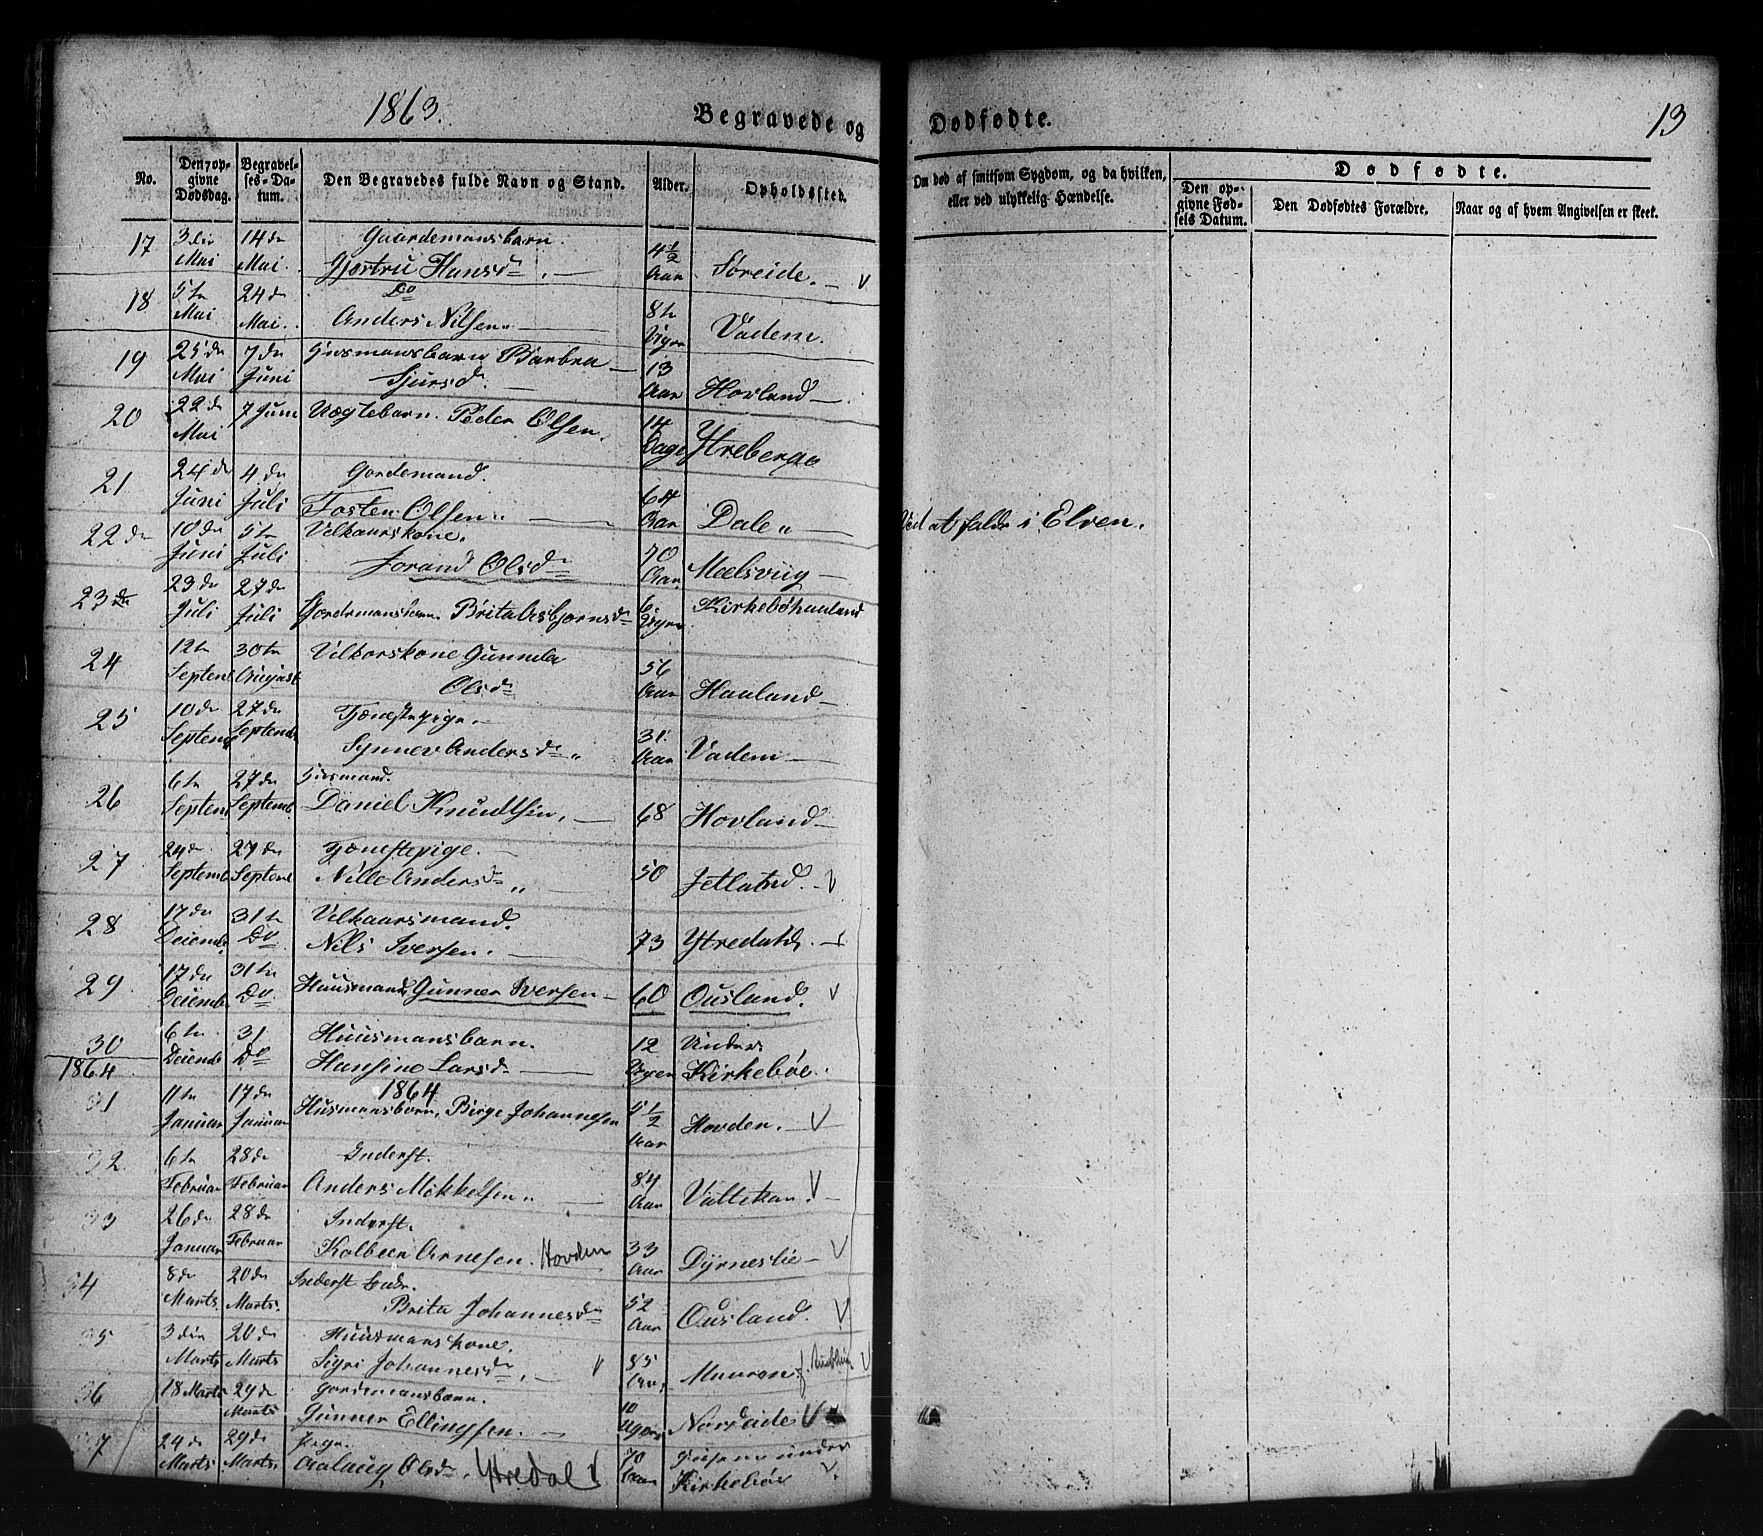 1863.
Begravede og Dødfødte.
13
No.
Den opgivne Dødsdag.
Begravelses-Datum.
Den Begravedes fulde Navn og Stand.
Alder.
Opholdssted.
Om død af smitsom Sygdom, og da hvilken, eller ved ulykkelig Hændelse.
Dødfødte.
Den opgivne Fødsels Datum.
Den Dødfødtes Forældre.
Naar og af hvem Angivelsen er skeet.
17 3die Mai 14de Mai. Gaardemansbarn. Gjertru Hansd. 4½ Aar Søreide. V
18 5te Mai 24de Mai. Do Anders Nilsen. 8te Uger Vadem.
19 25de Mai 7de Juni Husmansbarn Barbra Sjursd. 13 Aar Hovland
20 22de Mai 7 Juni Uægtebarn. Peder Olsen. 14 Dage Ytrebergo
21 24de Juni 4de Juli Gordemand. Tosten Olsen 64 Aar Dale Ved at falde i Elven.
22de 10de Juni 5te Juli Velkaarskone. Jorand Olsdr 70 Aar Mælsvig
23de 23de Juli 27de Juli Gordemansbarn Brita Asbjørnsdr 6. Uger Kirkebøhauland
24 12te Septem 30te August Vilkorskone Gunnila Olsdr 56 Aar Hauland
25 10de Septem 27de Septemb Tjenestepige. Synnev Andersdr 31 Aar Vadem
26 6te Septem 27de Septemb Husmand. Daniel Knudtsen. 68 Hovland
27 24de Septemb 27de Septem Tjenestepige. Nille Andersdr 50 Jetlund. V
28 17de Decemb 31te Do Velkaarsmand. Nils Iversen. 73 Ytredahl.
29 17de Decemb 31te Do Huusmand Gunner Iversen 60 Ousland. V
30 6te Decemb 31 Do Huusmansbarn. Hansine Larsdr 12 Uger Under Kirkebøe.
1864
1864
31 11te Januar 17de Januar Husmansbarn, Birge Johannesen 5½ Aar Hovden. V
32 6te Februar 28de Februar Inderst. Anders Mikkelsen 84 Aar V
33 26de Januar 28de Februar Inderst. Kolbein Arnesen. Hovden 33 Aar Dyrneslie V
34 8de Marts 20de Marts. Inderst Brita Johannesdr 52 Aar Ousland. V
35 3die Marts 20de Marts Huusmanskone. Sigri Johannesdr. V 85 Aar Mauren V
36 18 Marts 29de Marts Gordemansbarn. Gunner Ellingsen. 10 Uger Norreide V
37 24de Marts 29de Marts. Pige. Aalaug Olsdr. Ytredal 70 Aar under Kirkebøe V.